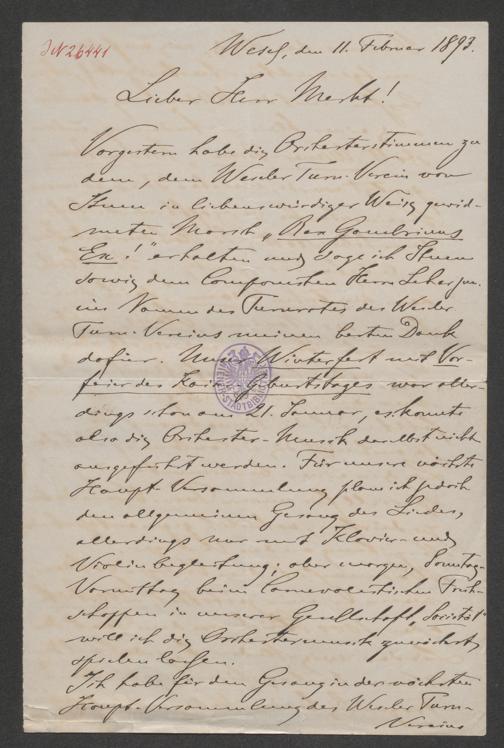 JN 26441
Wesel, den 11. Februar 1893.
Lieber Herr Merkt!
Vorgestern habe die Orchesterstimmen zu
dem, dem Weseler Turn-Verein von
Ihnen in liebenswürdiger Weise gewid-
meten Marsch „Rex Gambrinus
Ex!" erhalten und sage ich Ihnen
sowie dem Componisten Herrn Lehar jun.
im Namen des Turnrates des Weseler
Turn-Vereins meinen besten Dank
dafür. Unser Winterfest mit Vor-
feier des Kaisers Geburtstages war aller-
dings schon am 21. Januar, es konnte
also die Orchester-Musik daselbst nicht
ausgeführt werden. Für unsere nächste
Haupt-Versammlung plane ich jedoch
den allgemeinen Gesang des Liedes,
allerdings nur mit Klavier- und
Violinbegleitung; aber morgen, Sonntag-
Vormittag beim Carnevalistischen Früh-
schoppen in unserer Gesellschaft „Societät"
will ich die Orchestermusik zunächst
spielen lassen.
Ich habe für den Gesang in der nächsten
Haupt-Versammlung des Weseler Turn-
Vereins